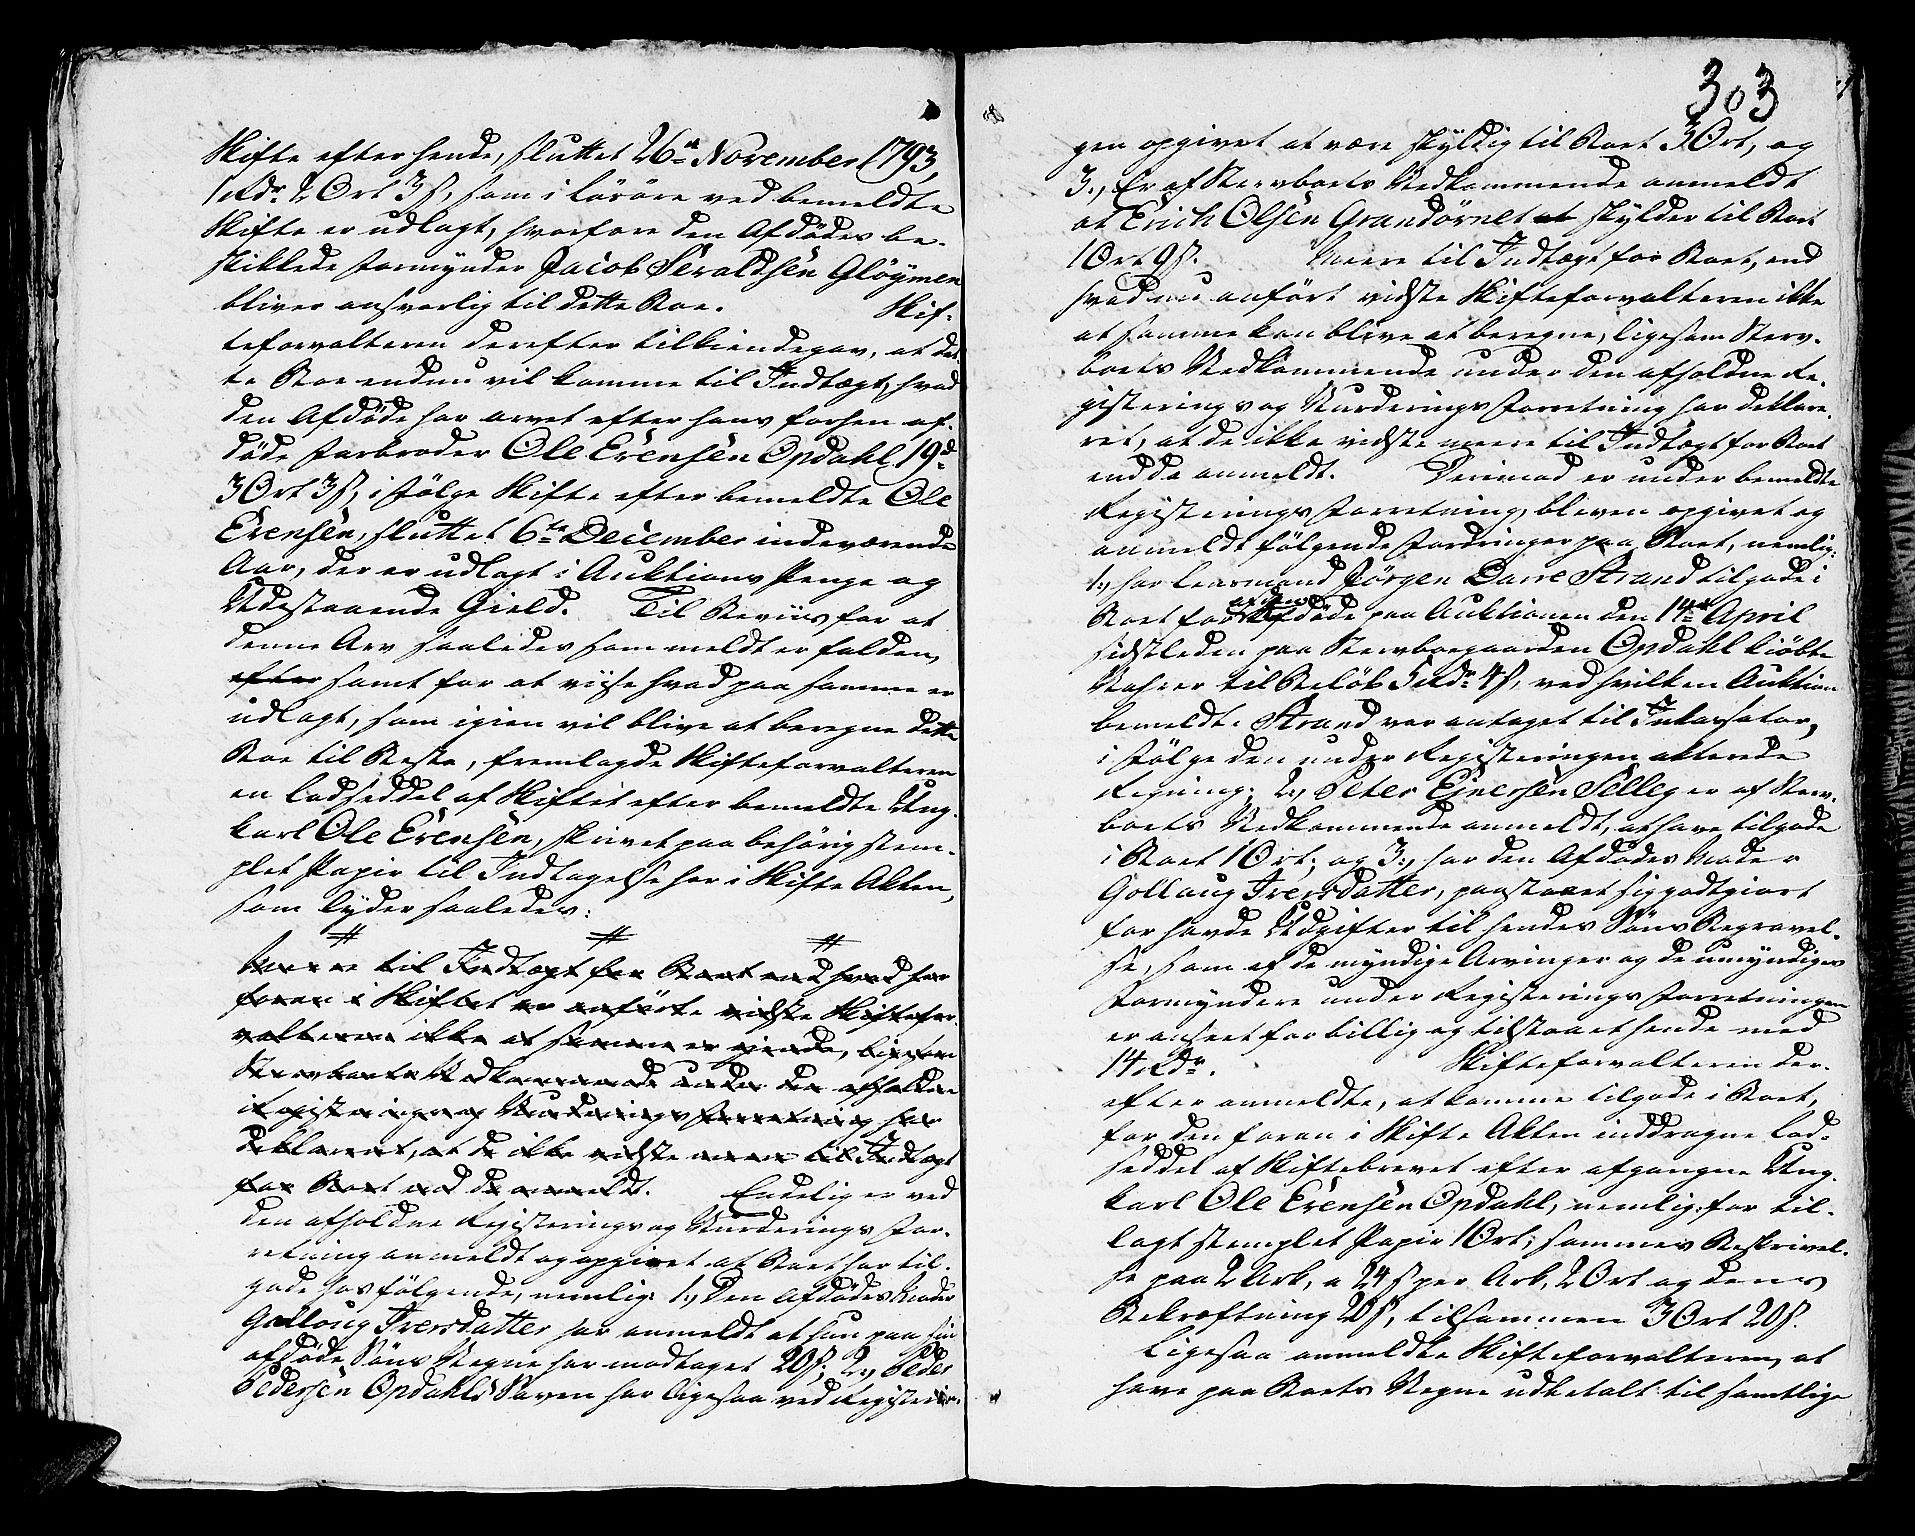 Skifte efter hende, sluttet 26de November 1793,
1 rdr. 2 Ort 3 s, som i Løsøre ved bemeldte
Skifte er udlagt, hvorfore den Afdødes be-
skikkede Formynder Jacob Seraldsen Gløymen
bliver ansvarlig til dette Boe. Skif-
teforvalteren derefter tilkiendegav, at det-
te Boe endnu vil komme til Indtægt, hvad
den Afdøde har arvet efter hans forhen af-
døde Farbroder Ole Erensen Opdahl, 19 d.
3 Ort 3 s, i Følge Skifte efter bemeldte Ole
Erensen, sluttet 6te December indeværende
Aar, der er udlagt i Auktions Penge og
Udestaaende Gield. Til Beviis for at
denne Arv saaledes som meldt er falden,
efter samt for at viise hvad paa samme er
udlagt, som igien vil blive at beregne dette
Boe til Beste, fremlagde Skifteforvalteren
en Lodseddel af Skiftet efter bemeldte Ung-
karl Ole Erensen, skrivet paa behørig stem-
plet Papir til Indtagelse her i Skifte Akten,
som lyder saaledes:
# # #
Meere til Indtægt for Boet end hvad her
foran i Skiftet er anført vidste Skiftefor-
valteren ikke at samme er eiende, ligesom
Stervboets Vedkommende under den afholdne
Registerings og Vurderings Forretning har
deklareret, at de ikke vidste meere til Indtægt
for Boet end de anmeldt. Endelig er ved
den afholdne Registerings og Vurderings For-
retning anmeldt og opgivet at Boet har til-
gode hos følgende, nemlig: 1., Den Afdødes Moder
Gollaug Iversdatter har anmeldt at hun paa sin
afdøde Søns Vegne har modtaget 20 s; 2., Peder
Pedersen Opdahls Søven har ligesaa ved Registerin-
303
gen opgivet at være skyldig til Boet 3 Ort, og
3., Er af Stervboets Vedkommende anmeldt
at Erich Olsen Grandørnet at skylder til Boet
1 Ort 9 s. Meere til Indtægt for Boet, end
hvad nu anført vidste Skifteforvalteren ikke
at samme kan blive at beregne, ligesom Sterv-
boets Vedkommende under den afholdne Re-
gisterings og Vurderings Forretning har deklare-
ret, at de ikke vidste meere til Indtægt for Boet
end de anmeldt. Derimod er under bemeldte
Registerings Forretning, bleven opgivet og
anmeldt følgende Fordringer paa Boet, nemlig:
1., har Leensmand Jørgen Darre Strand tilgode i
Boet for af den Afdøde paa Auktionen den 14de April
sidstleden paa Stervboegaarden Opdahl kiøbte
Vahrer til Beløb 5 rdr. 4 s, ved hvilken Auktion
bemeldte Strand var antaget til Inkassator,
i Følge den under Registeringen akterede
Regning; 2., Peter Ejnersen Selleg er af Sterv-
boets Vedkommende anmeldt, at have tilgode
i Boet 1 Ort; og 3., har den Afdødes Moder
Gollaug Iversdatter, paastaaet sig godtgiort
for havde Udgifter til hendes Søns Begravel-
se, som af de myndige Arvinger og de umyndiges
Formyndere under Registerings Forretningen
er anseet for billig og tilstaaet hende med
14 rdr. Skifteforvalteren der-
efter anmeldte, at komme tilgode i Boet,
for den foran i Skifte Akten inddragne Lod-
seddel af Skiftebrevet efter afgangne Ung-
karl Ole Erensen Opdahl, nemlig: for til-
lagt stemplet Papir 1 Ort; sammes Beskrivel-
se paa 2 Ark, a 24 s per Ark, 2 Ort og dens
Bekræftning 20 s, tilsammen 3 Ort 20 s.
Ligesaa anmeldte Skifteforvalteren, at
have paa Boets Vegne udbetalt til samtlige